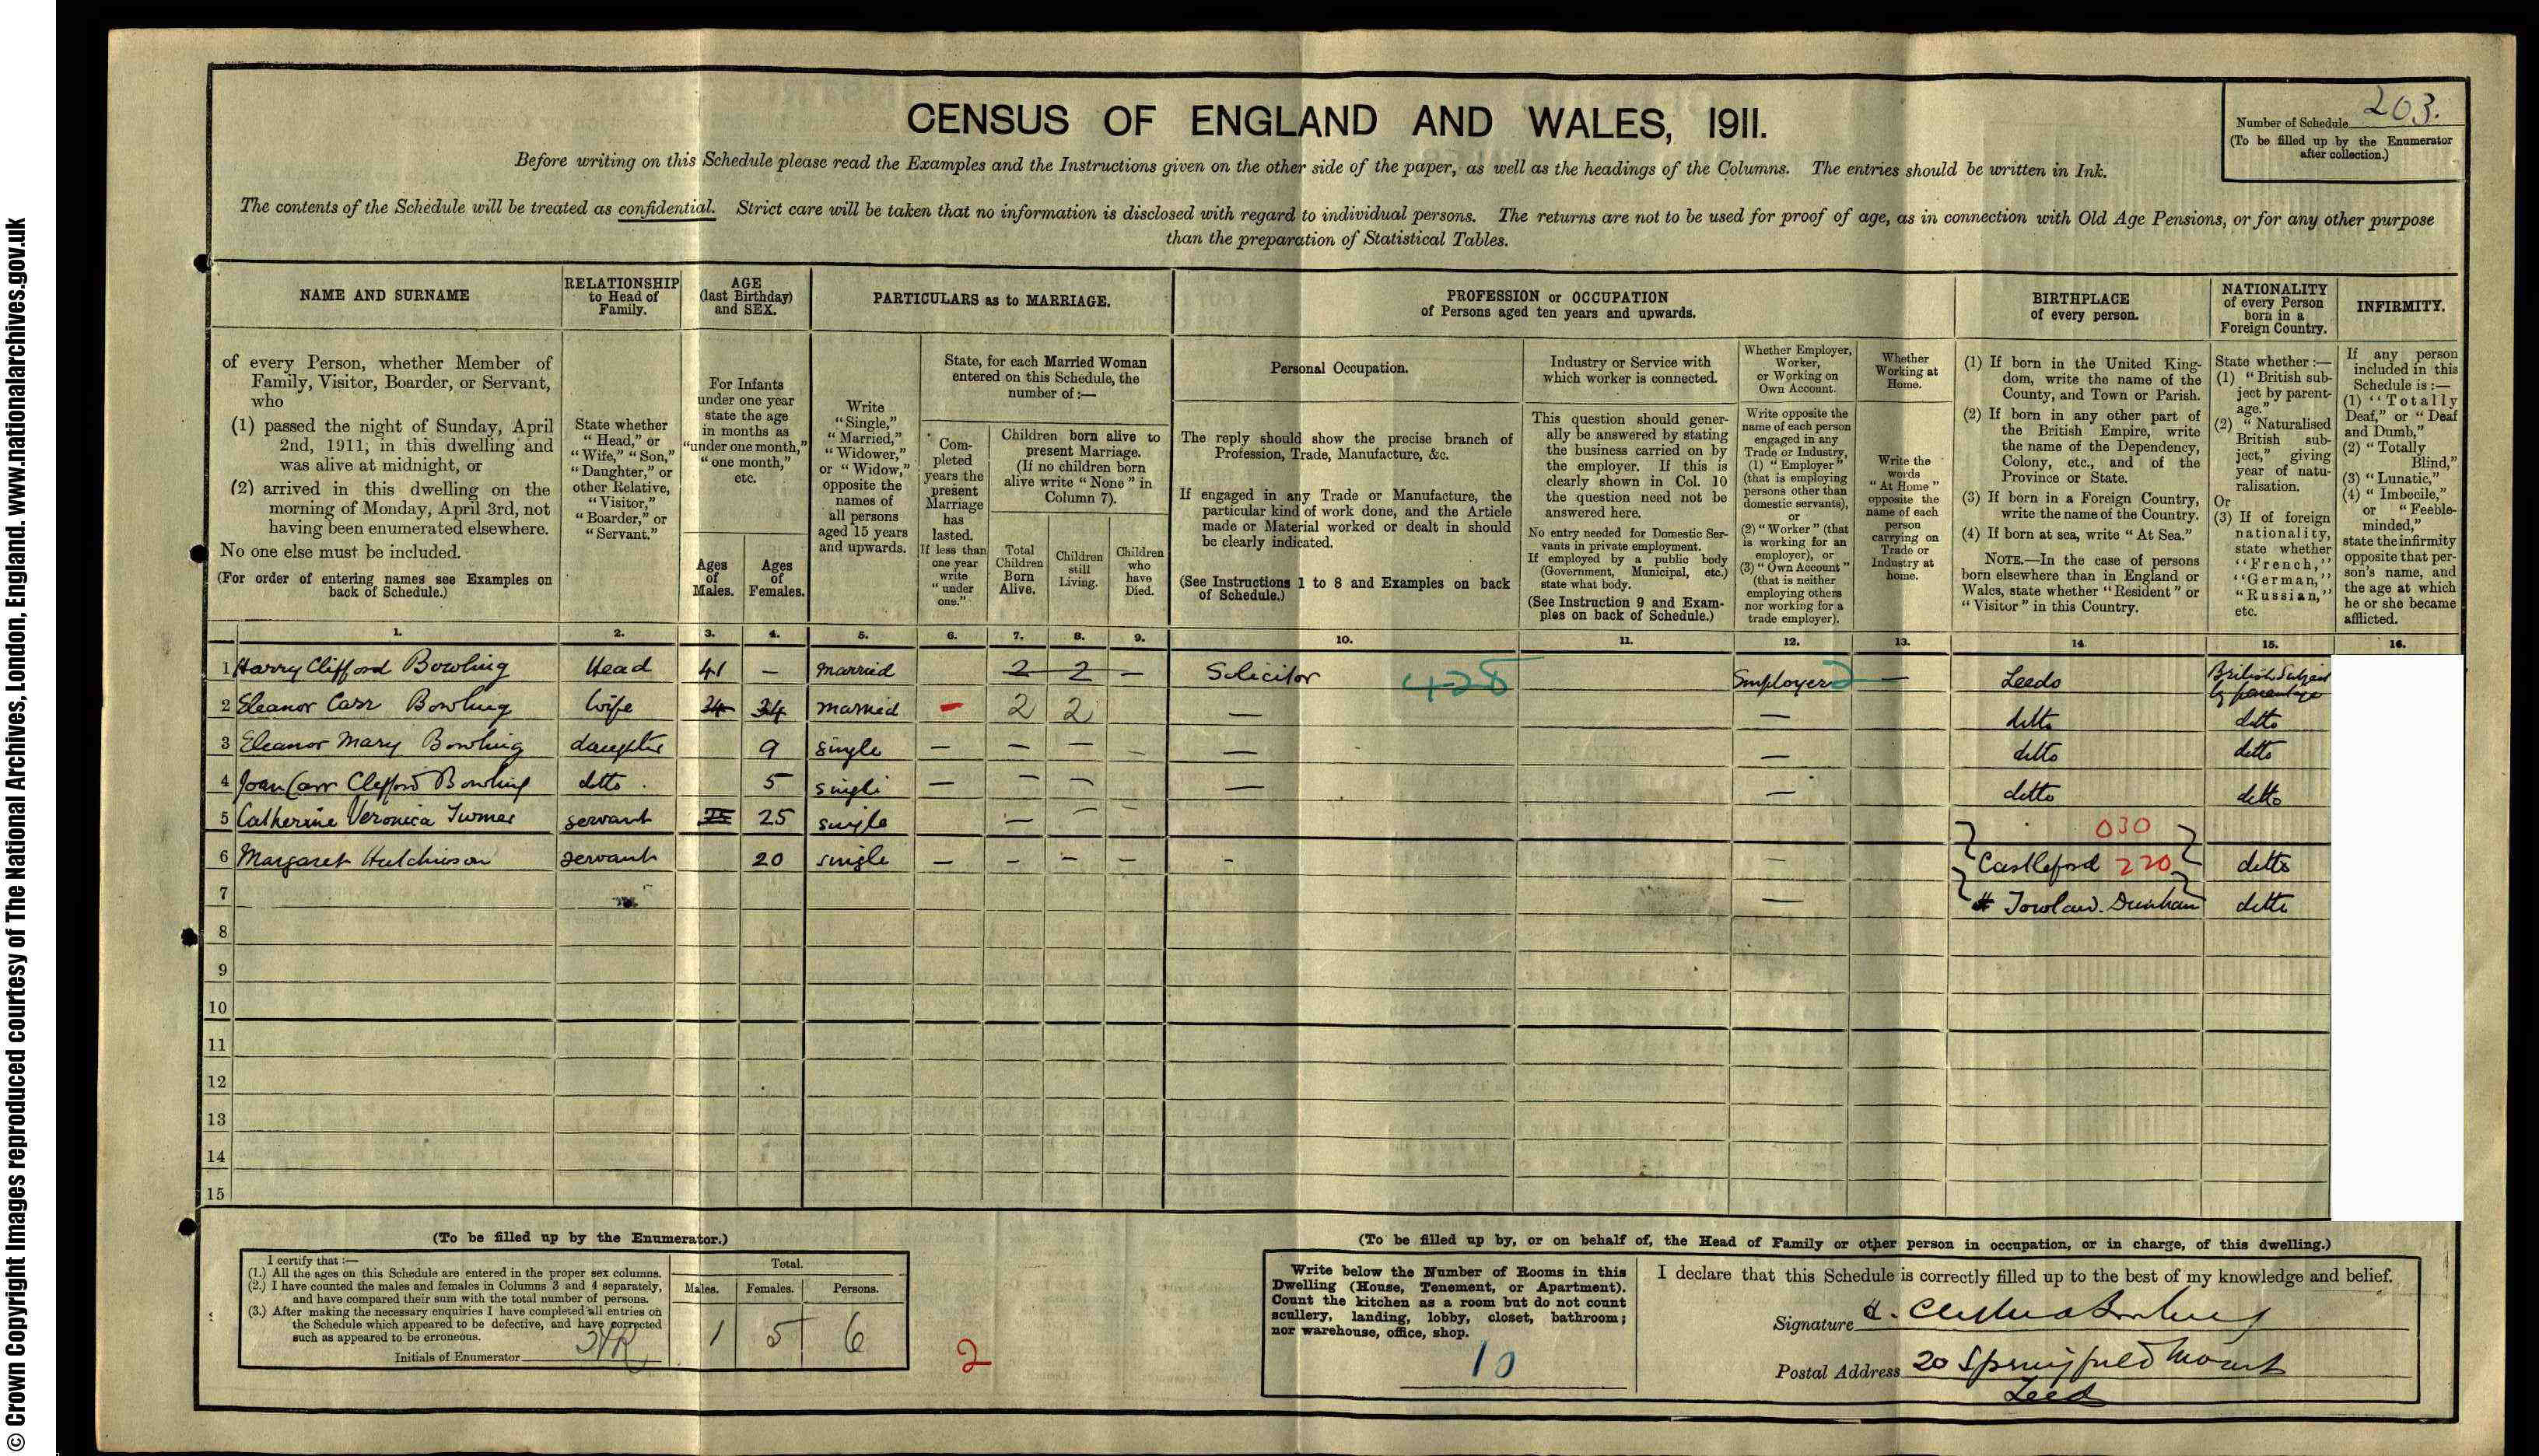 © Crown Copyright Images reproduced courtesy of The National Archives, London, England. www.nationalarchives.gov.uk
CENSUS OF ENGLAND AND WALES, 1911.
Number of Schedule 203.
(To be filled up by the Enumerator
after collection.)
Before writing on this Schedule please read the Examples and the Instructions given on the other side of the paper, as well as the headings of the Columns. The entries should be written in Ink.
The contents of the Schedule will be treated as confidential. Strict care will be taken that no information is disclosed with regard to individual persons. The returns are not to be used for proof of age, as in connection with Old Age Pensions, or for any other purpose
than the preparation of Statistical Tables.
NAME AND SURNAME
of every Person, whether Member of
Family, Visitor, Boarder, or Servant,
who
(1) passed the night of Sunday, April
2nd, 1911, in this dwelling and
was alive at midnight, or
(2) arrived in this dwelling on the
morning of Monday, April 3rd, not
having been enumerated elsewhere.
No one else must be included.
(For order of entering names see Examples on
back of Schedule.)
RELATIONSHIP
to Head of
Family.
State whether
"Head," or
"Wife," "Son,"
"Daughter," or
other Relative,
"Visitor,"
"Boarder," or
"Servant."
AGE
(last Birthday)
and SEX.
For Infants
under one year
state the age
in months as
"under one month,"
"one month,"
etc.
Ages
of
Males.
Ages
of
Females.
PARTICULARS as to MARRIAGE.
Write
"Single,"
"Married,"
"Widower,"
or "Widow,"
opposite the
names of
all persons
aged 15 years
and upwards.
State, for each Married Woman
entered on this Schedule, the
number of :—
Com-
pleted
years the
present
Marriage
has
lasted.
If less than
one year
write
"under
one."
Children born alive to
present Marriage.
(If no children born
alive write "None" in
Column 7).
Total
Children
Born
Alive.
Children
still
Living.
Children
who
have
Died.
PROFESSION or OCCUPATION
of Persons aged ten years and upwards.
Personal Occupation.
The reply should show the precise branch of
Profession, Trade, Manufacture, &c.
If engaged in any Trade or Manufacture, the
particular kind of work done, and the Article
made or Material worked or dealt in should
be clearly indicated.
(See Instructions 1 to 8 and Examples on back
of Schedule.)
Industry or Service with
which worker is connected.
This question should gener-
ally be answered by stating
the business carried on by
the employer. If this is
clearly shown in Col. 10
the question need not be
answered here.
No entry needed for Domestic Ser-
vants in private employment.
If employed by a public body
(Government, Municipal, etc.)
state what body.
(See Instruction 9 and Exam-
ples on back of Schedule.)
Whether Employer,
Worker,
or Working on
Own Account.
Write opposite the
name of each person
engaged in any
Trade or Industry,
(1) "Employer"
(that is employing
persons other than
domestic servants),
or
(2) "Worker" (that
is working for an
employer), or
(3) "Own Account"
(that is neither
employing others
nor working for a
trade employer).
Whether
Working at
Home.
Write the
words
"At Home"
opposite the
name of each
person
carrying on
Trade or
Industry at
home.
BIRTHPLACE
of every person.
(1) If born in the United King-
dom, write the name of the
County, and Town or Parish.
(2) If born in any other part of
the British Empire, write
the name of the Dependency,
Colony, etc., and of the
Province or State.
(3) If born in a Foreign Country,
write the name of the Country.
(4) If born at sea, write "At Sea."
NOTE.—In the case of persons
born elsewhere than in England or
Wales, state whether "Resident" or
"Visitor" in this Country.
NATIONALITY
of every Person
born in a
Foreign Country.
State whether :—
(1) "British sub-
ject by parent-
age."
(2) "Naturalised
British sub-
ject," giving
year of natu-
ralisation.
Or
(3) If of foreign
nationality,
state whether
"French,"
"German,"
"Russian,"
etc.
INFIRMITY.
If any person
included in this
Schedule is :—
(1) "Totally
Deaf," or "Deaf
and Dumb,"
(2) "Totally
Blind,"
(3) "Lunatic,"
(4) "Imbecile,"
or "Feeble-
minded,"
state the infirmity
opposite that per-
son's name, and
the age at which
he or she became
afflicted.
1. 2. 3. 4. 5. 6. 7. 8. 9. 10. 11. 12. 13. 14. 15. 16.
1 Harry Clifford Bowling Head 41 — married 2 2 — Solicitor 428 Employer 2 — Leeds British Subject by parentage
2 Eleanor Carr Bowling wife 34 34 married - 2 2 — — ditto ditto
3 Eleanor Mary Bowling daughter 9 single — — — — — — ditto ditto
4 Joan Carr Clifford Bowling ditto 5 single — — — — — ditto ditto
5 Catherine Veronica Turner servant 25 25 single — — — 030
6 Margaret Hutchinson servant 20 single — — — — - — Castleford 220 ditto
7 — Towlaw. Durham ditto
8
9
10
11
12
13
14
15
(To be filled up by the Enumerator.)
I certify that :—
(1.) All the ages on this Schedule are entered in the proper sex columns.
(2.) I have counted the males and females in Columns 3 and 4 separately,
and have compared their sum with the total number of persons.
(3.) After making the necessary enquiries I have completed all entries on
the Schedule which appeared to be defective, and have corrected
such as appeared to be erroneous.
Initials of Enumerator
Total.
Males. Females. Persons.
1 5 6
2
(To be filled up by, or on behalf of, the Head of Family or other person in occupation, or in charge, of this dwelling.)
Write below the Number of Rooms in this
Dwelling (House, Tenement, or Apartment).
Count the kitchen as a room but do not count
scullery, landing, lobby, closet, bathroom;
nor warehouse, office, shop.
10
I declare that this Schedule is correctly filled up to the best of my knowledge and belief.
Signature H. Clifford Bowling
Postal Address 20 Springfield Mount
Leeds